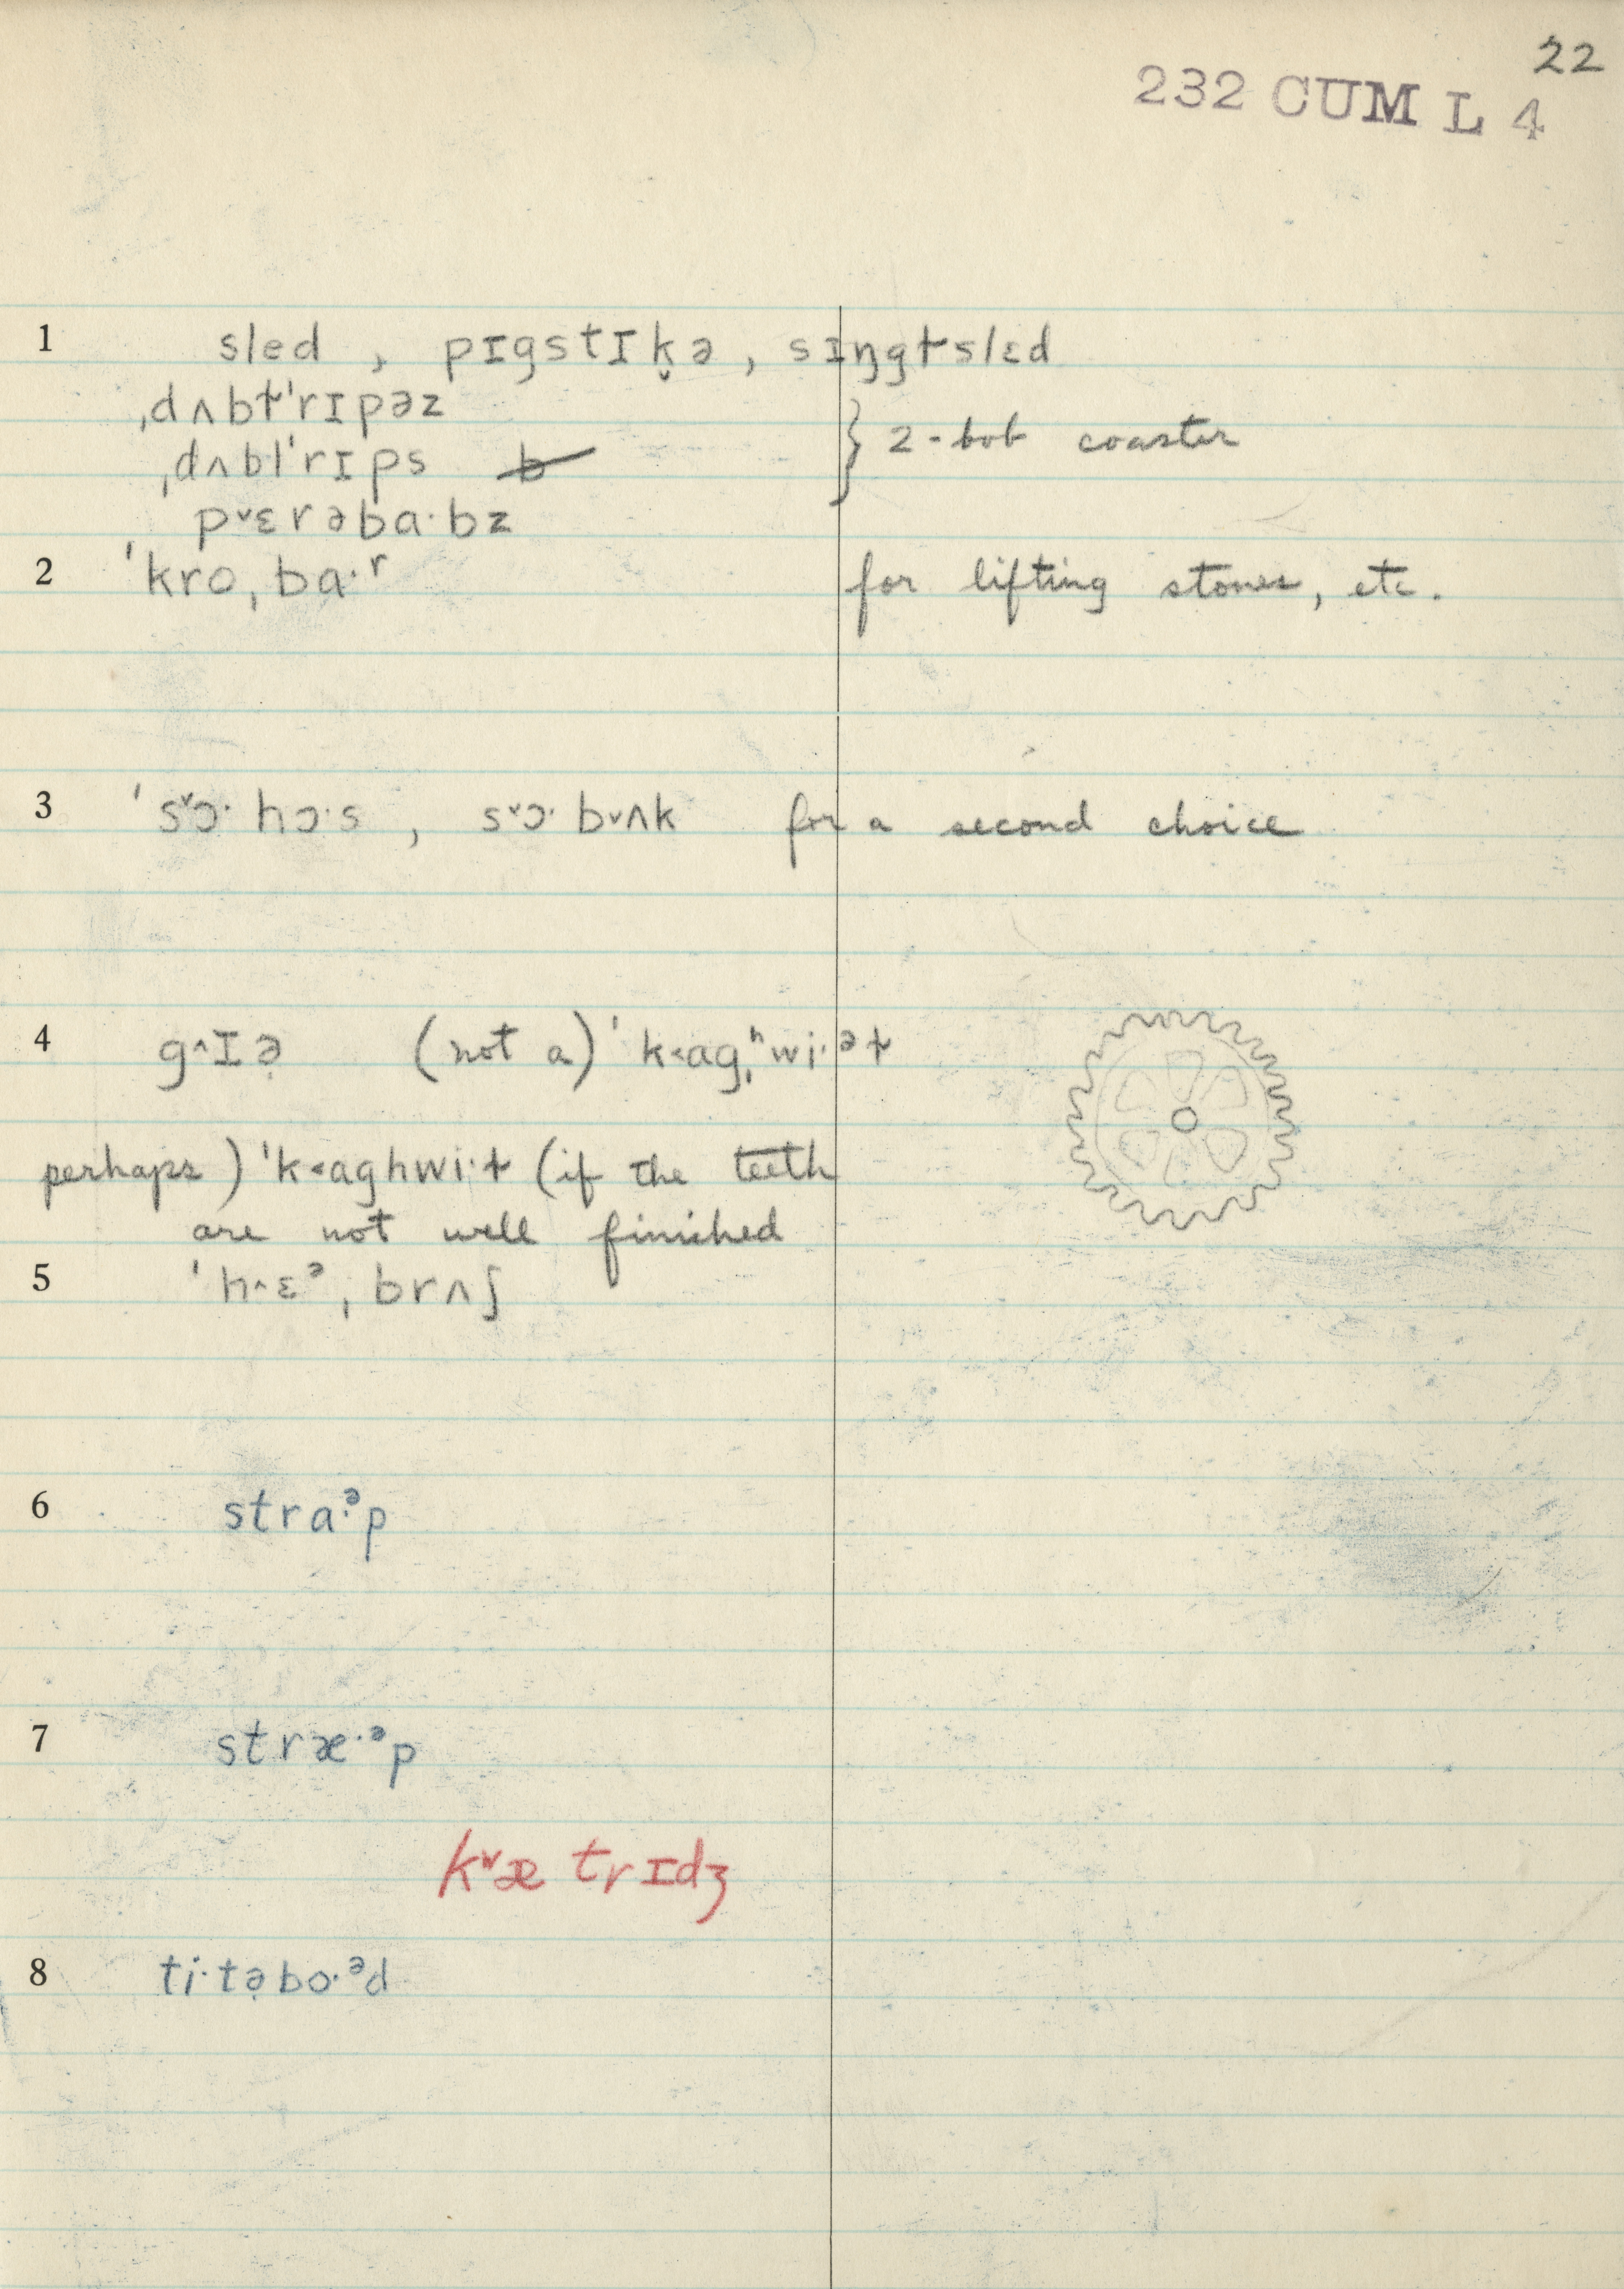 22
232 CUM L 4
1 sled , pɪgstɪk̬ə , sɪŋgɫslɛd
ˌdʌbɫˈrɪpəz
ˌdʌblˈrɪps b } 2-bob coaster
p˅ɛrəba·bz
2 ˈkroˌba·ʳ for lifting stones, etc.
3 ˈs˅ɔ· hɔ·s , s˅ɔ· b˅ʌk for a second choice
4 g˄ɪə̣ (not a) ˈk˂agˌʰwi·ᵊɫ
perhaps) ˈk˂aghwi·ɫ (if the teeth
are not well finished
5 ˈh˄ɛᵊˌbrʌʃ
6 stra·ᵊp
7 stræ·ᵊp
k˅æ trɪdʒ
8 ti·tə̣bo·ᵊd